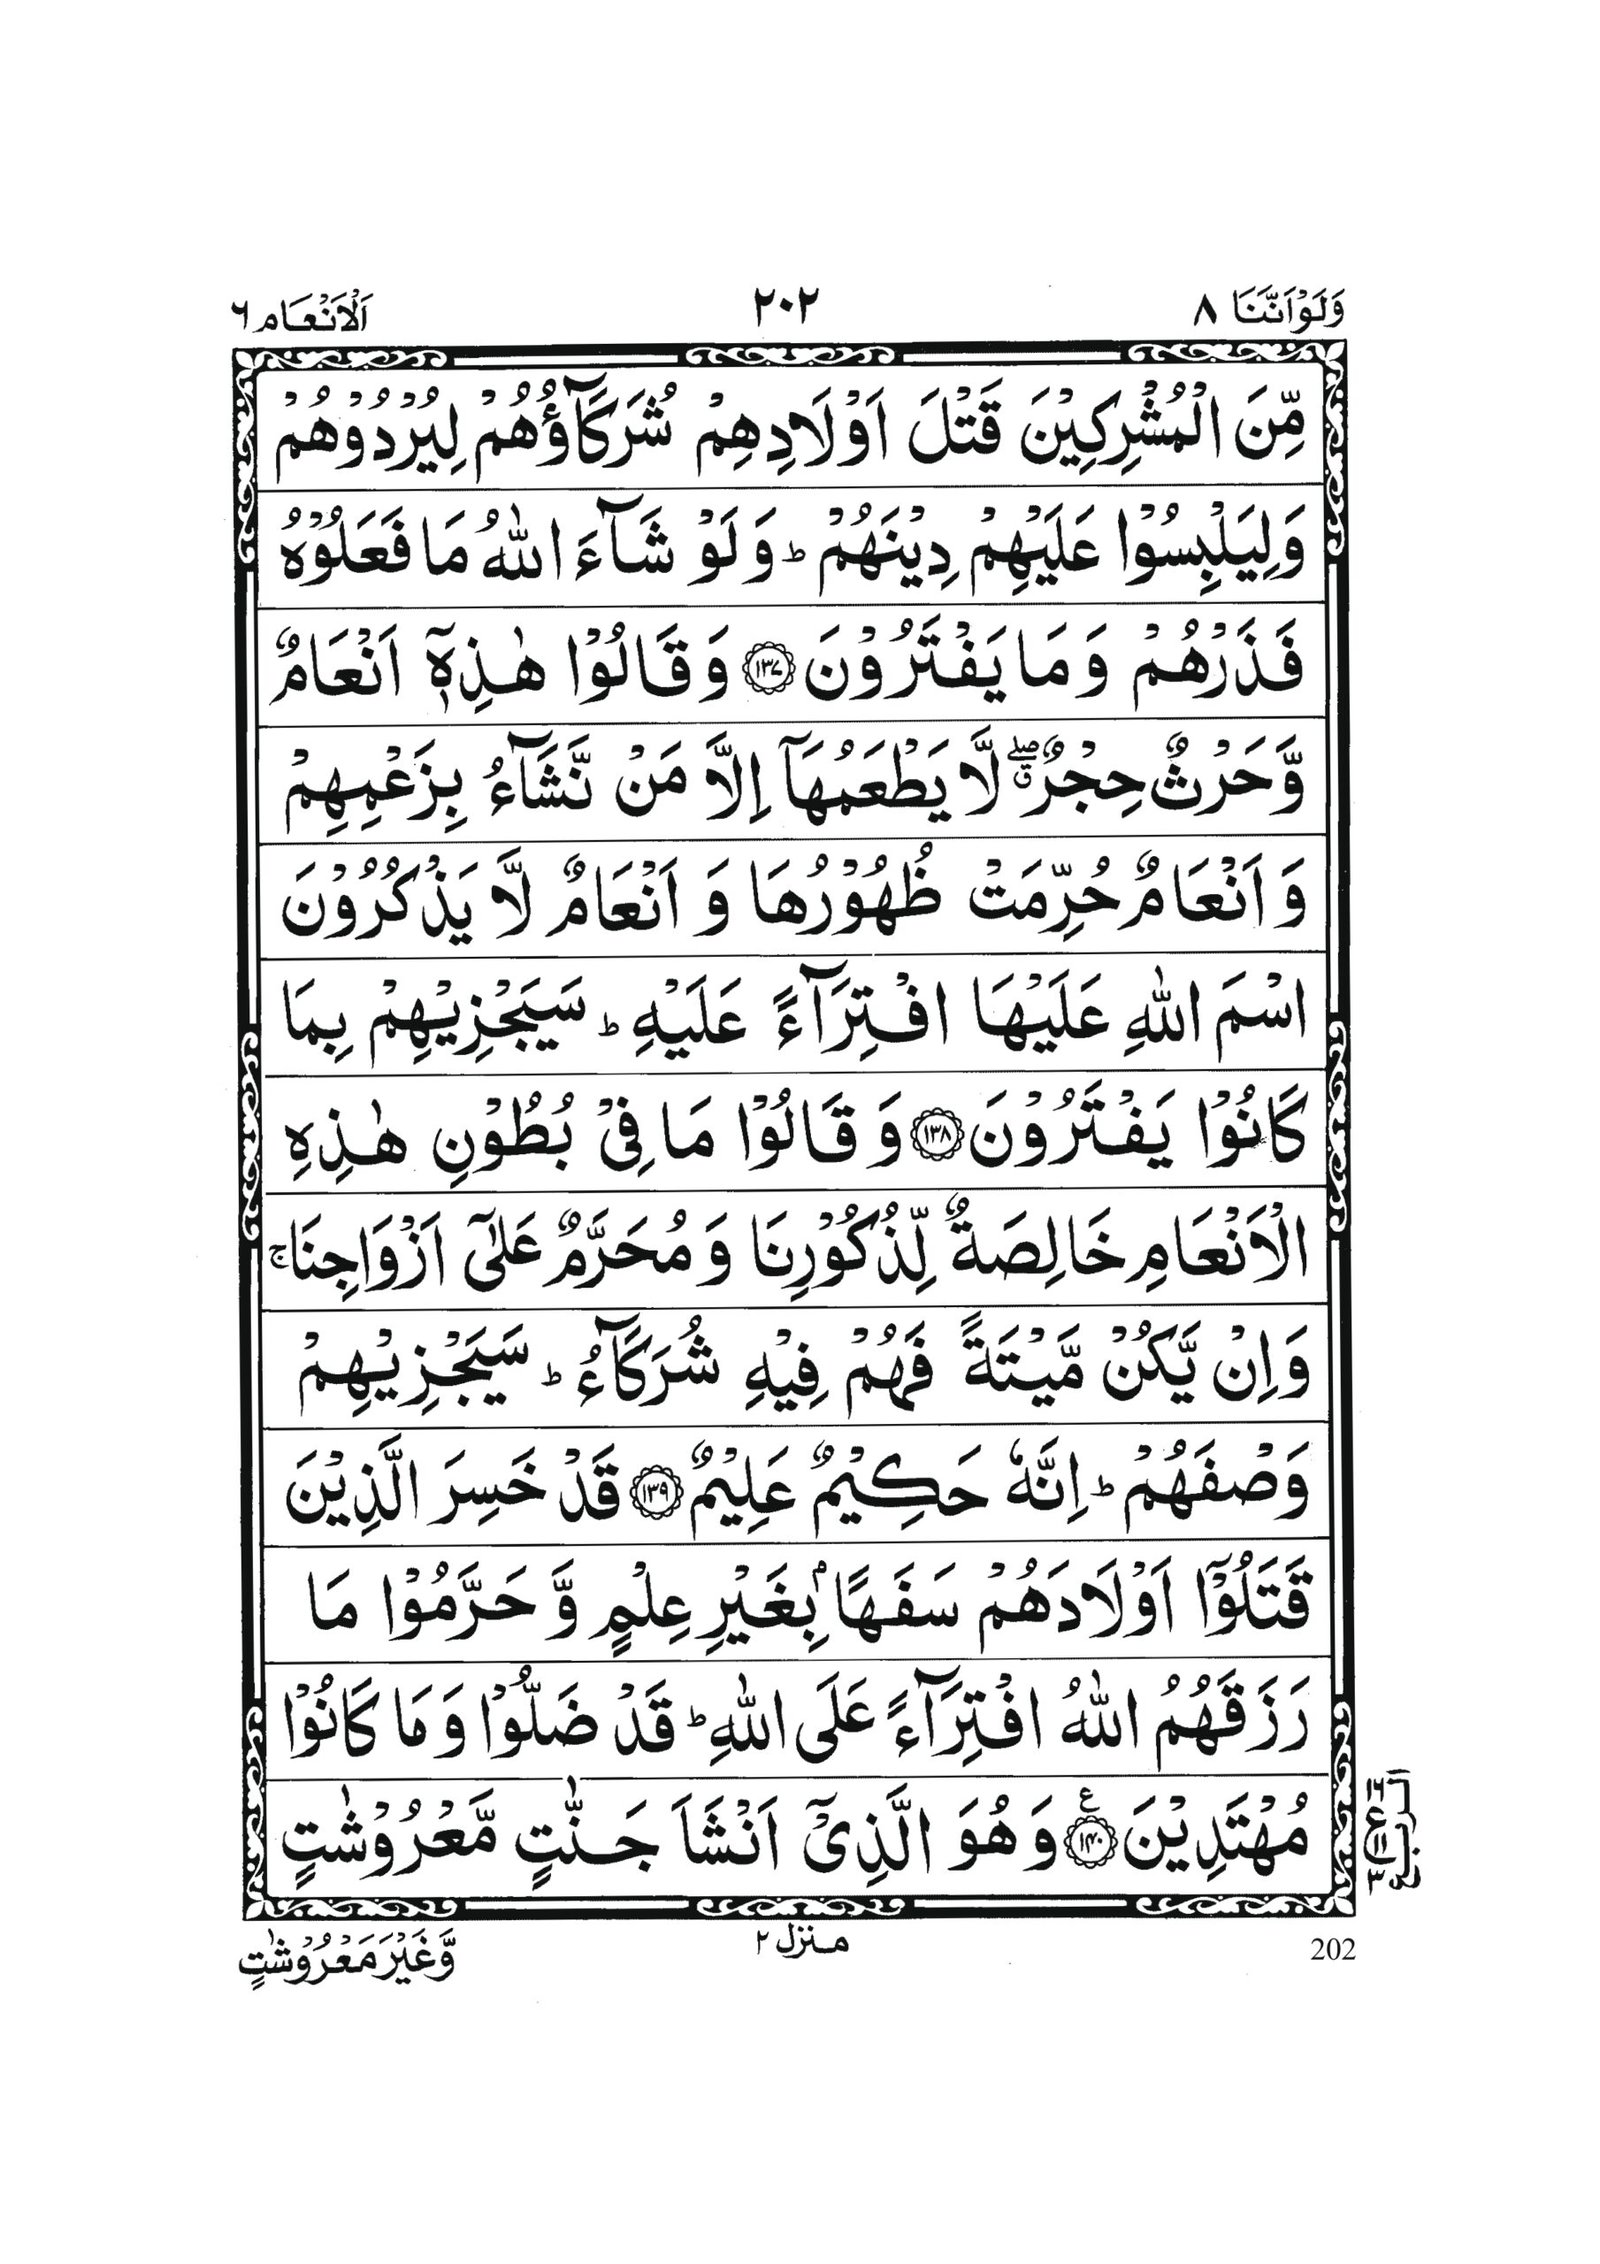 وَلَوْاَنَّنَا ٨
٢٠٢
اَلْاَنْعَام ٦
مِّنَ الْمُشْرِكِيْنَ قَتْلَ اَوْلَادِهِمْ شُرَكَآؤُهُمْ لِيُرْدُوْهُمْ
وَلِيَلْبِسُوْا عَلَيْهِمْ دِيْنَهُمْ ؕ وَلَوْ شَآءَ اللّٰهُ مَا فَعَلُوْهُ
فَذَرْهُمْ وَمَا يَفْتَرُوْنَ ﴿١٣٧﴾ وَقَالُوْا هٰذِهٖۤ اَنْعَامٌ
وَّحَرْثٌ حِجْرٌ ۖۗ لَّا يَطْعَمُهَاۤ اِلَّا مَنْ نَّشَآءُ بِزَعْمِهِمْ
وَاَنْعَامٌ حُرِّمَتْ ظُهُوْرُهَا وَاَنْعَامٌ لَّا يَذْكُرُوْنَ
اسْمَ اللّٰهِ عَلَيْهَا افْتِرَآءً عَلَيْهِ ؕ سَيَجْزِيْهِمْ بِمَا
كَانُوْا يَفْتَرُوْنَ ﴿١٣٨﴾ وَقَالُوْا مَا فِىْ بُطُوْنِ هٰذِهِ
الْاَنْعَامِ خَالِصَةٌ لِّذُكُوْرِنَا وَمُحَرَّمٌ عَلٰٓى اَزْوَاجِنَا ۚ
وَاِنْ يَّكُنْ مَّيْتَةً فَهُمْ فِيْهِ شُرَكَآءُ ؕ سَيَجْزِيْهِمْ
وَصْفَهُمْ ؕ اِنَّهٗ حَكِيْمٌ عَلِيْمٌ ﴿١٣٩﴾ قَدْ خَسِرَ الَّذِيْنَ
قَتَلُوْۤا اَوْلَادَهُمْ سَفَهًاۢ بِغَيْرِ عِلْمٍ وَّحَرَّمُوْا مَا
رَزَقَهُمُ اللّٰهُ افْتِرَآءً عَلَى اللّٰهِ ؕ قَدْ ضَلُّوْا وَمَا كَانُوْا
مُهْتَدِيْنَ ﴿١٤٠﴾ ع وَهُوَ الَّذِىْۤ اَنْشَاَ جَنّٰتٍ مَّعْرُوْشٰتٍ
الربع
202
منزل ٢
وَّغَيْرَ مَعْرُوْشٰتٍ